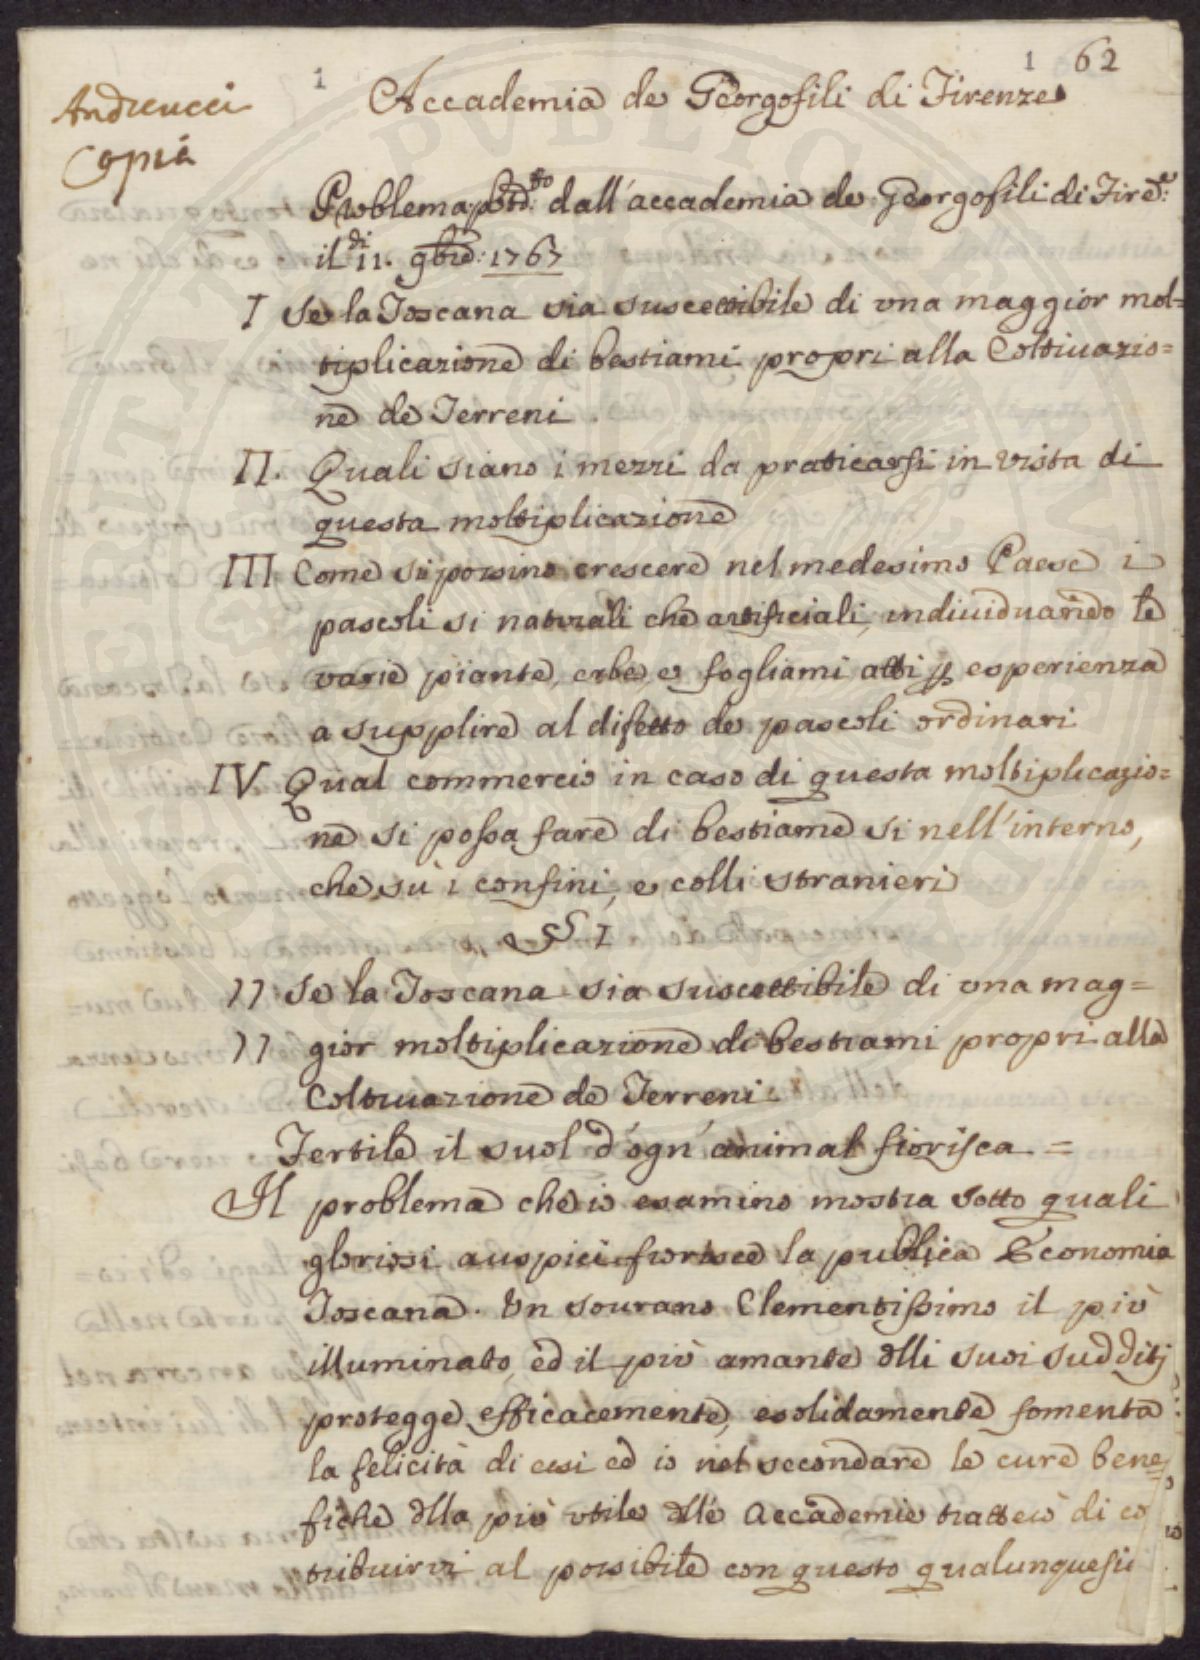 1 62
1
Andreucci
Copia
Accademia de Georgofili di Firenze
Problema dall'accademia de Georgofili di Fire:e
il dì 11. 9bre: 1767
I Se la Toscana sia suscettibile di una maggior mol=
tiplicazione di bestiami propri alla Coltivazio=
ne de Terreni
II. Quali siano i mezzi da praticarsi in vista di
questa moltiplicazione
III Come si possino crescere nel medesimo Paese i
pascoli si naturali che artificiali, individuando le
varie piante, erbe, e fogliami atti p esperienza
a supplire al difetto de pascoli ordinari
IV Qual commercio in caso di questa moltiplicazio=
ne si possa fare di bestiame si nell'interno,
che sù i confini, e colli stranieri
§ I
" Se la Toscana sia suscettibile di una mag=
" gior moltiplicazione di bestiami propri alla
Coltivazione de Terreni.
Fertile il suol d'ogn'animal fiorisca =
Il problema che io esamino mostra sotto quali
gloriosi auspici fiorisce la publica Economia
Toscana. Un sovrano Clementissimo il più
illuminato, ed il più amante dlli suoi sudditi
protegge efficacemente, e solidamente fomenta
la felicità di essi ed io nel secondare le cure bene
fiche dlla più utile dlle Accademie tratterò di co
tribuirvi al possibile con questo qualunque sii